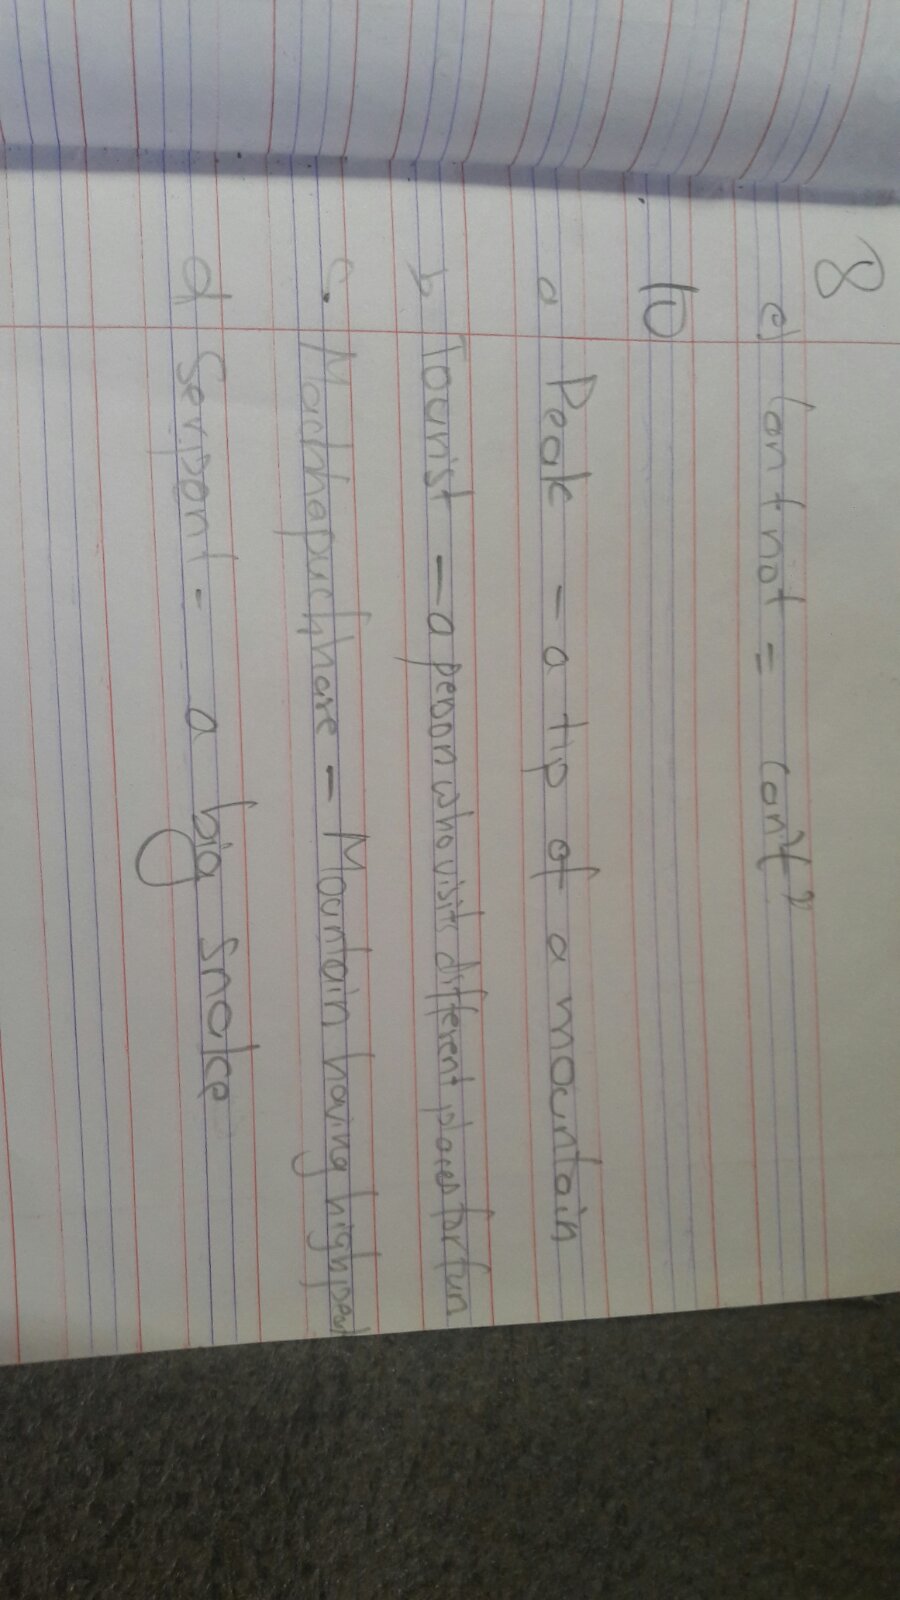 8
e) Can + not = Can't"
10
a Peak - a tip of a mountain
b Tourist - a person who visits different places for fun
c. Machhapuchhare - Mountain having high peak
d Serpent - a big snake